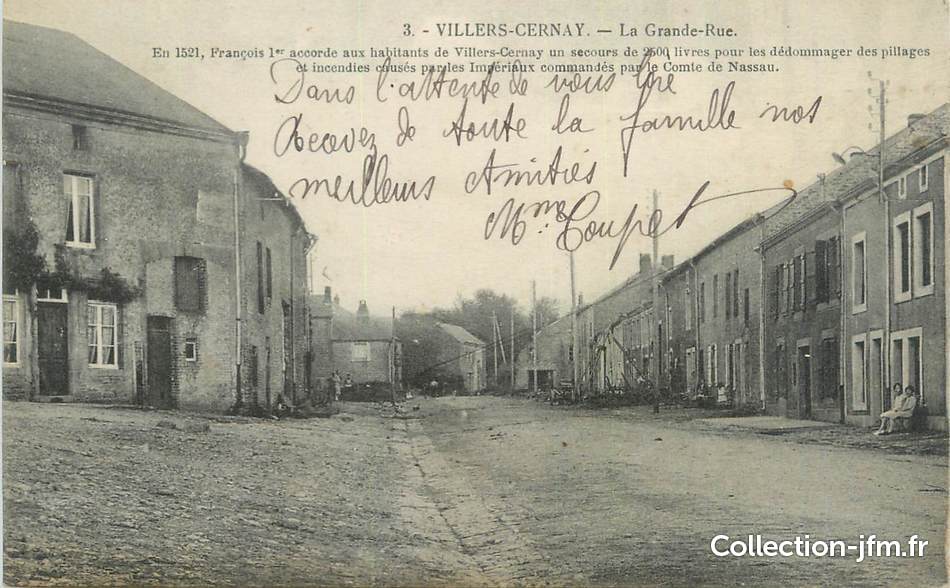 3. - VILLERS-CERNAY. — La Grande-Rue.
En 1521, François 1er accorde aux habitants de Villers-Cernay un secours de 2500 livres pour les dédommager des pillages
et incendies causés par les Impériaux commandés par le Comte de Nassau.
Dans l'attente de vous lire
Recevez de toute la famille nos
meilleurs Amitiés
Mme Coupet
Collection-jfm.fr